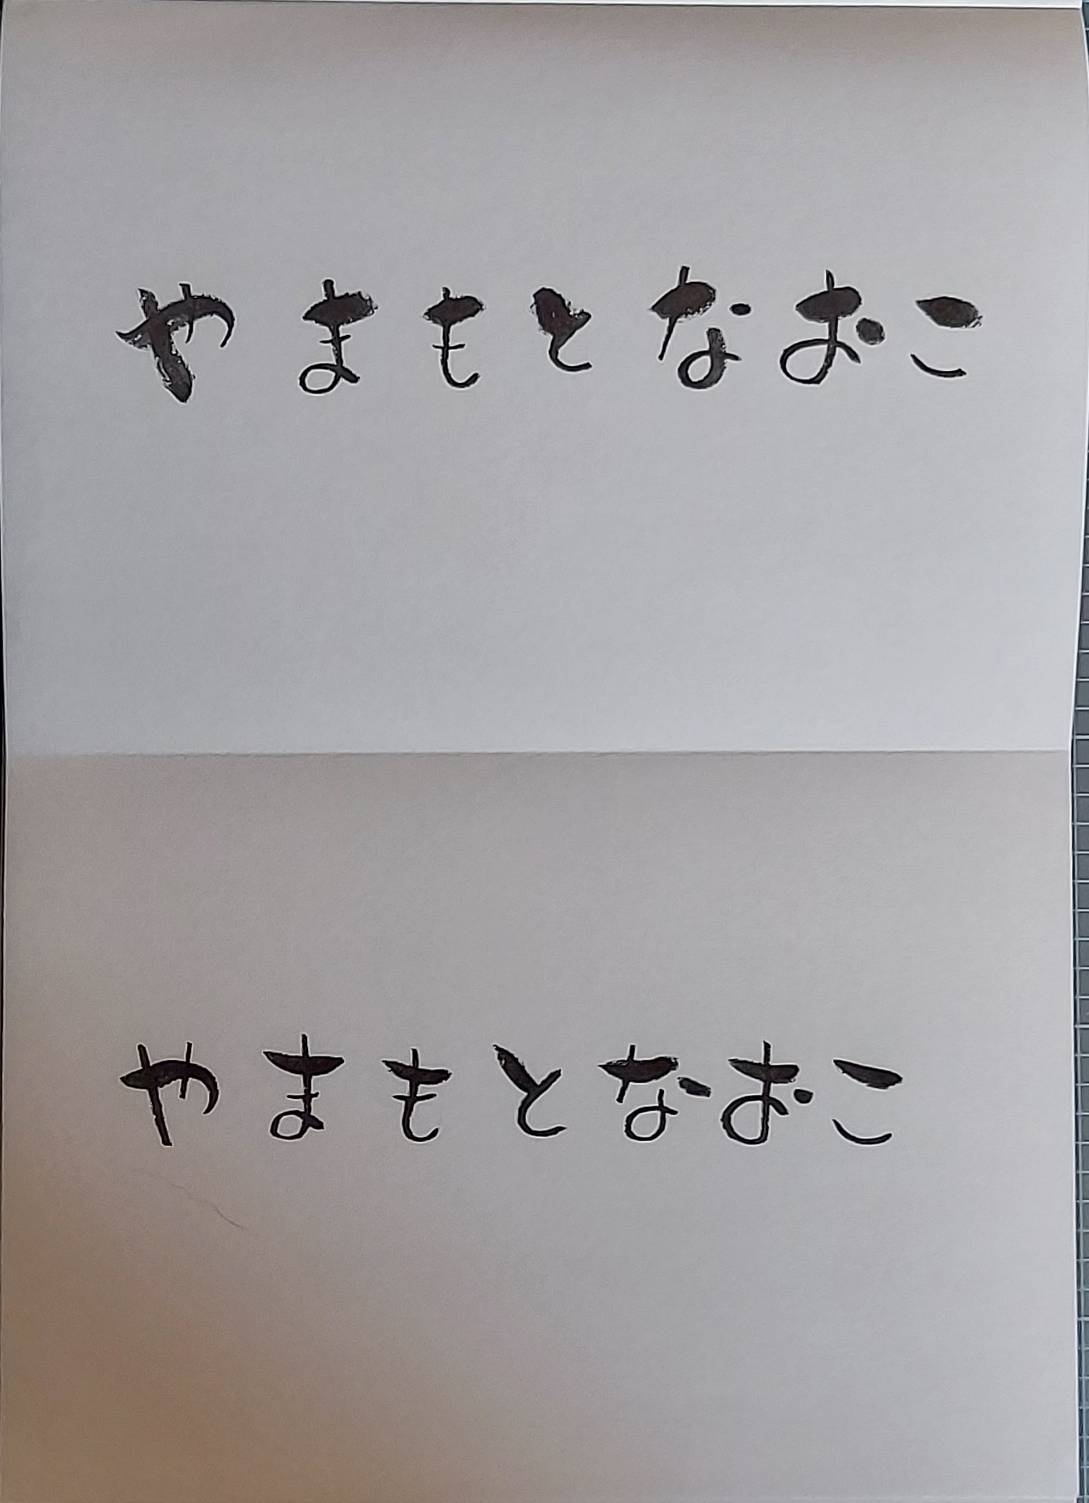 やまもとなおこ
やまもとなおこ